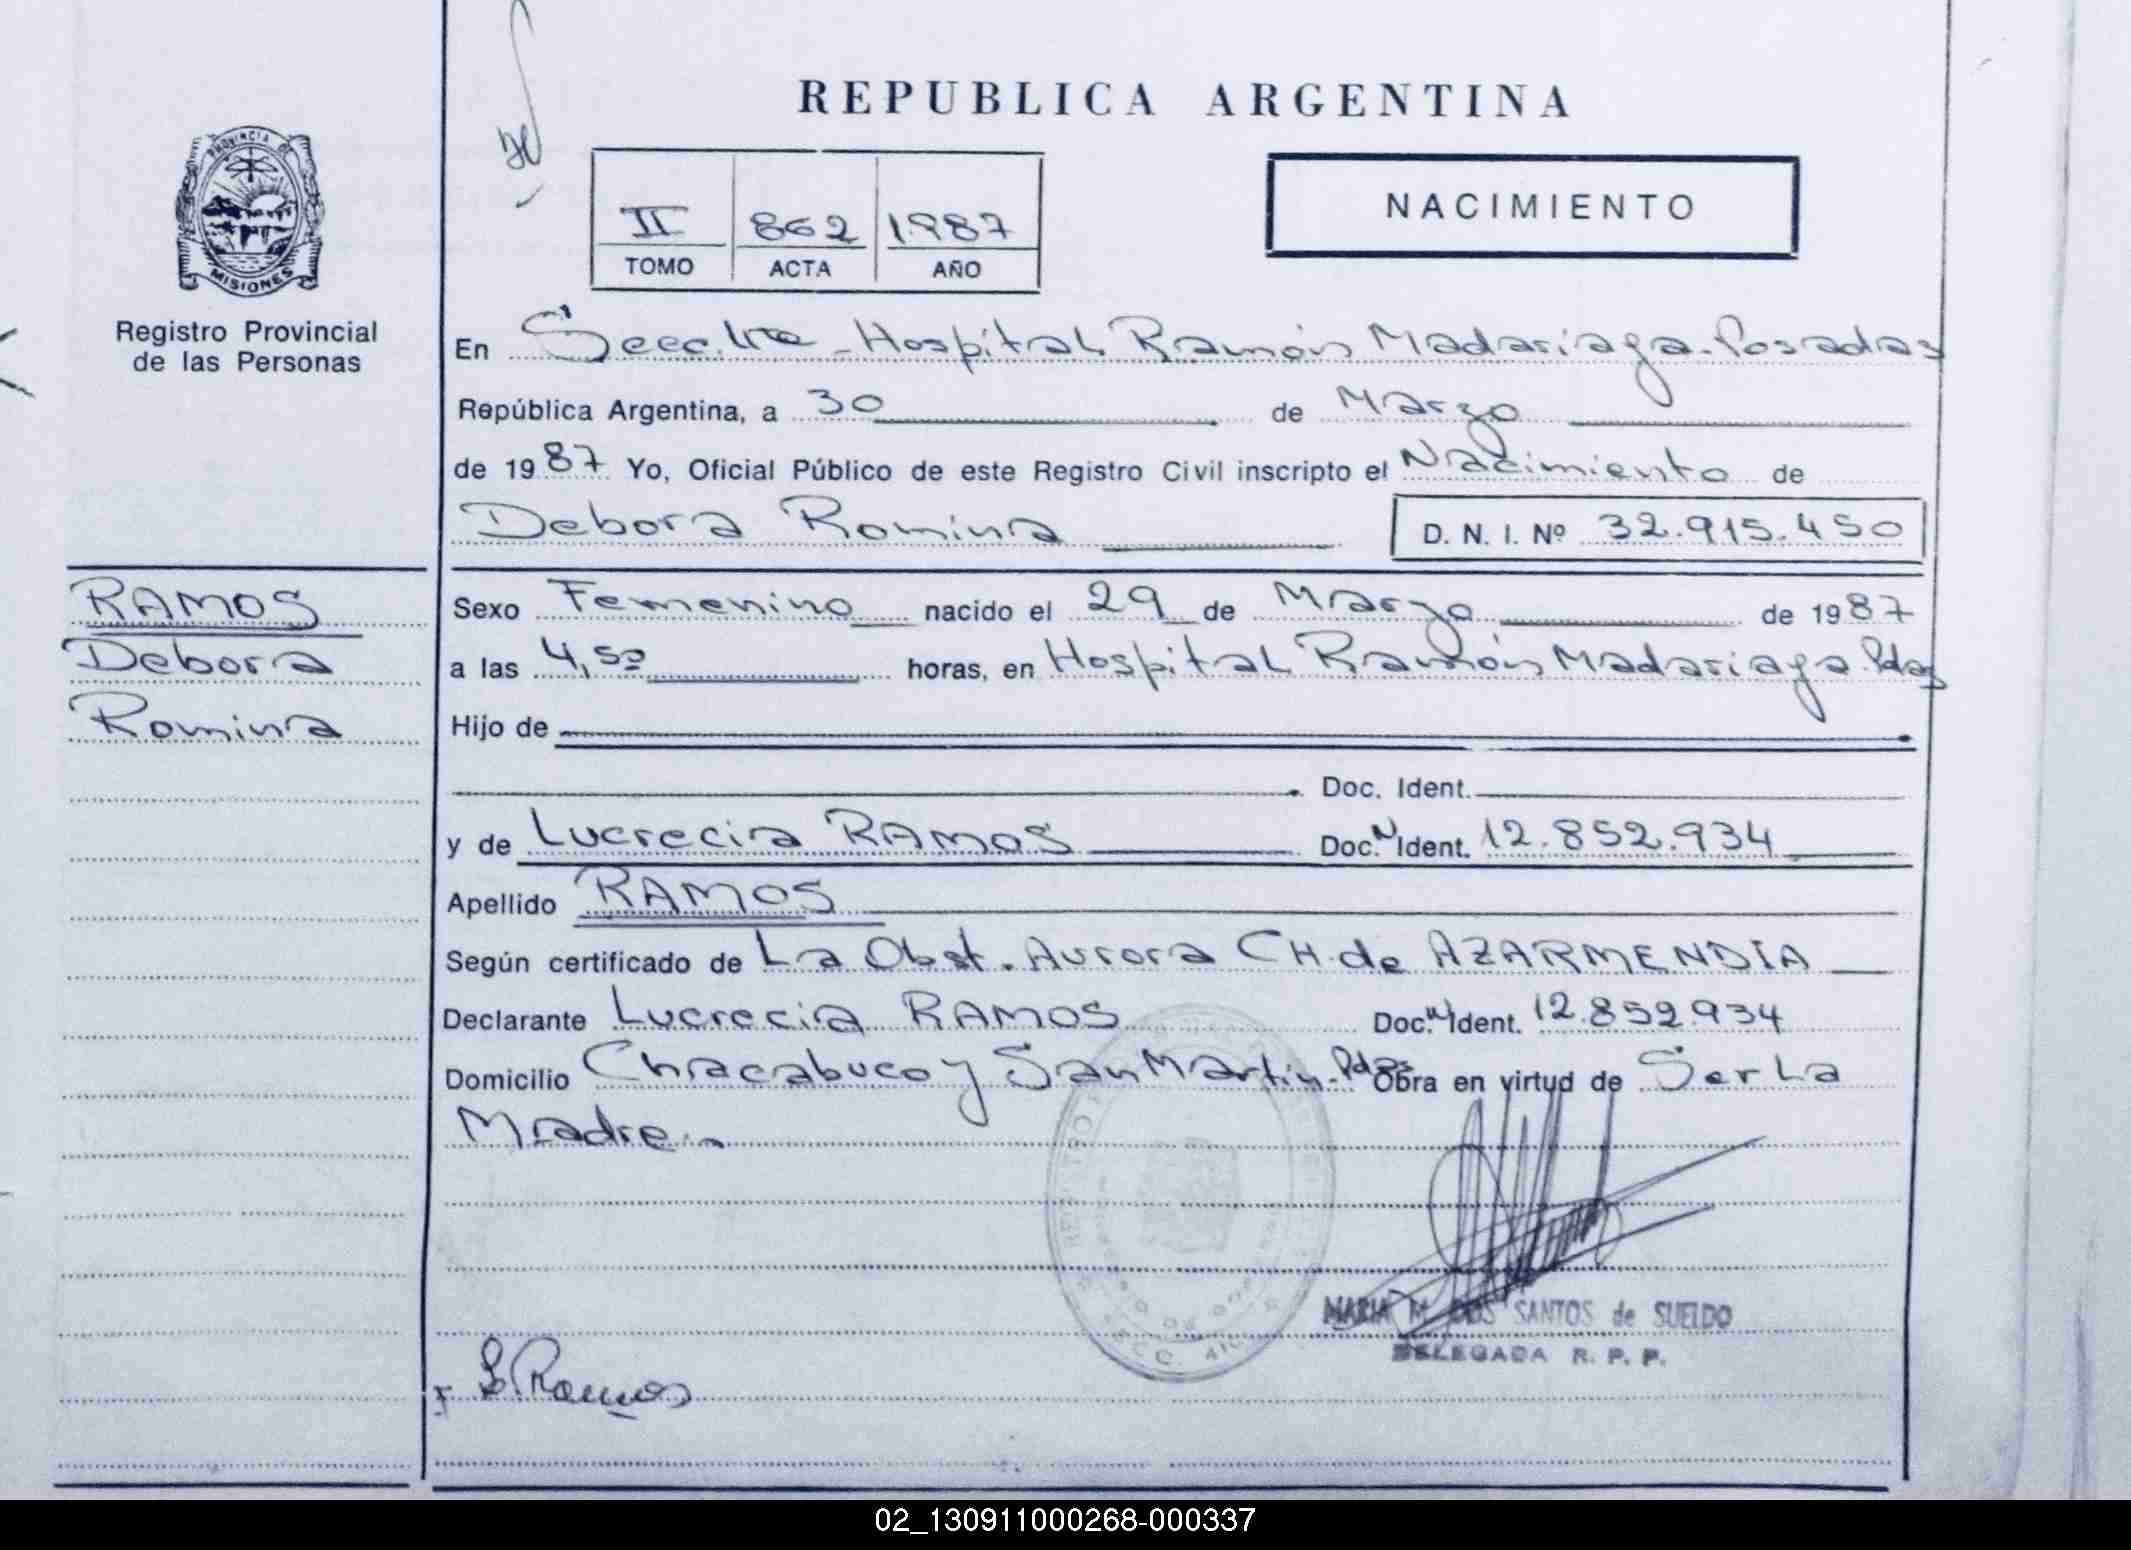 REPUBLICA ARGENTINA
PROVINCIA DE
MISIONES
Registro Provincial
de las Personas
II 862 1987
TOMO ACTA AÑO
NACIMIENTO
En Secc. 1ra - Hospital Ramón Madariaga - Posadas
República Argentina, a 30 de Marzo
de 1987 Yo, Oficial Público de este Registro Civil inscripto el Nacimiento de
Debora Romina D. N. I. Nº 32.915.450
RAMOS
Debora
Romina
Sexo Femenino nacido el 29 de Marzo de 1987
a las 4,50 horas, en Hospital Ramón Madariaga. Pdas
Hijo de
Doc. Ident.
y de Lucrecia RAMOS Doc. N Ident. 12.852.934
Apellido RAMOS
Según certificado de La Obst. Aurora CH. de AZARMENDIA
Declarante Lucrecia RAMOS Doc. N Ident. 12.852.934
Domicilio Chacabuco y San Martin - Pdas Obra en virtud de Ser La
Madre.
MARIA M. DOS SANTOS de SUELDO
DELEGADA R. P. P.
L Ramos
02_130911000268-000337